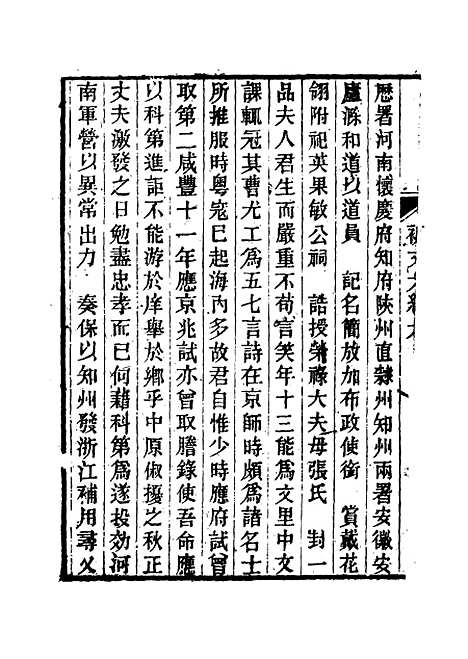 歴署河南懷慶府知府陝州直隸州知州兩署安徽安
廬滁和道以道員　記名簡放加布政使銜　賞戴花
翎附祀英果敏公祠　誥授榮祿大夫母張氏　封一
品夫人君生而嚴重不苟言笑年十三能爲文里中文
課輒冠其曹尤工爲五七言詩在京師時頗爲諸名士
所推服時粵寇已起海內多故君自惟少時應府試曾
取第二咸豐十一年應京兆試亦曾取謄錄使吾命應
以科第進詎不能游於庠舉於鄉乎中原俶擾之秋正
丈夫激發之日勉盡忠孝而已何藉科第爲遂投効河
南軍營以異常出力　奏保以知州發浙江補用尋父